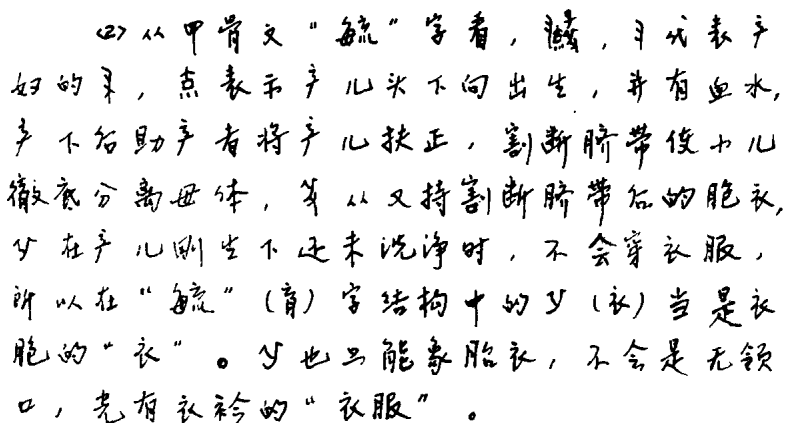 (2)从甲骨文“毓”字看，代表产
妇的，点表示产儿头下向出生，并有血水，
产下后助产者将产儿扶正，割断脐带使小儿
彻底分离母体，从又持割断脐带后的胞衣，
在产儿刚生下还未洗净时，不会穿衣服，
所以在“毓”(育)字结构中的(衣)当是衣
胞的“衣”。也只能象胎衣，不会是无领
口，光有衣衿的“衣服”。